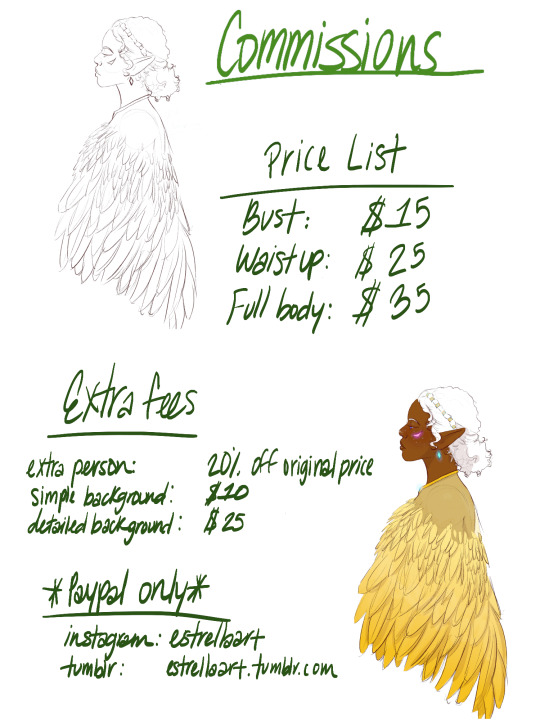 Commissions
Price List
Bust: $15
Waist up: $25
Full body: $35
Extra fees
extra person: 20% off original price
simple background: $10
detailed background: $25
*Paypal only*
instagram: estrellaart
tumblr: estrellaart.tumblr.com